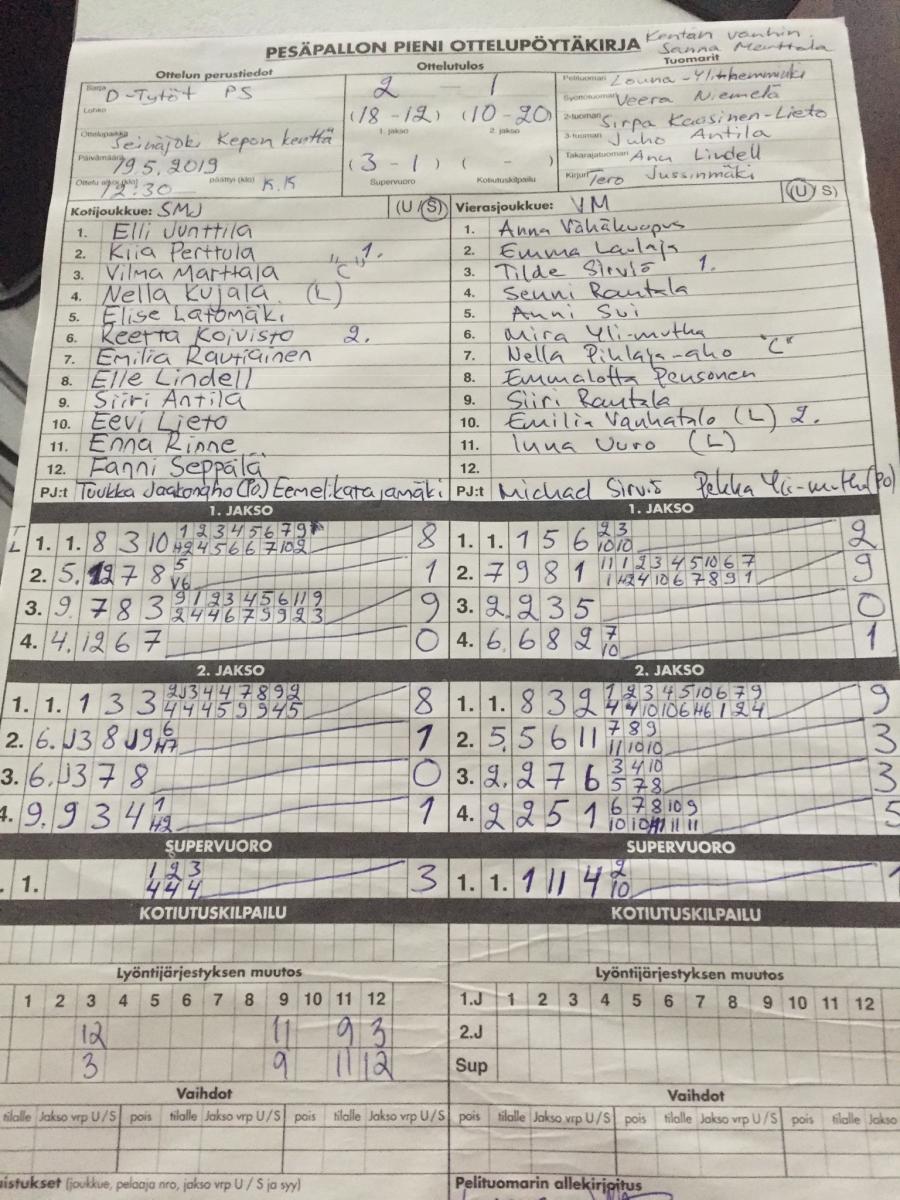 Kentän vanhin.
PESÄPALLON PIENI OTTELUPÖYTÄKIRJA Sanna Marttala
Ottelun perustiedot
Ottelutulos
Tuomarit
Sarja D-Tytöt PS
Lohko
Ottelupaikka Seinäjoki Kepon kenttä
Päivämäärä 19.5.2019
Ottelu alkoi (klo) 12:30 päättyi (klo) 15.15
2 — 1
(18 - 12) (10 - 20)
1. jakso 2. jakso
(3 - 1) ( - )
Supervuoro Kotiutuskilpailu
Pelituomari
Syöttötuomari Veera Niemelä
2-tuomari Sirpa Kaasinen-Lieto
3-tuomari Juho Antila
Takarajatuomari Anu Lindell
Kirjuri Tero Jussinmäki
Kotijoukkue: SMJ (U / S)
1. Elli Junttila
2. Kiia Perttula 1.
3. Vilma Marttala "C"
4. Nella Kujala (L)
5. Elise Latomäki
6. Reetta Koivisto 2.
7. Emilia Rautiainen
8. Elle Lindell
9. Siiri Antila
10. Eevi Lieto
11. Enna Rinne
12. Fanni Seppälä
PJ:t Tuukka Jaakonaho (Po) Eemeli Katajamäki
Vierasjoukkue: VM (U / S)
1. Anna Vähäkuopus
2. Emma Laulaja
3. Tilde Sirviö 1.
4. Senni Rautala
5. Anni Sui
6. Mira Yli-mutka
7. Nella Pihlaja-aho "C"
8. Emmalotta Pensonen
9. Siiri Rautala
10. Emilia Vanhatalo (L) 2.
11. Inna Uuro (L)
12.
PJ:t Michael Sirviö Pekka Yli-mutka (Po)
1. JAKSO
1. 1. 8 3 10 1 2 3 4 5 6 7 9 8
H2 4 5 6 6 7 10 2
2. 5. 12 7 8 5 1
V6
3. 9. 7 8 3 9 1 2 3 4 5 6 11 9 9
2 4 4 6 7 9 9 2 3
4. 4. 12 6 7 0
1. JAKSO
1. 1. 1 5 6 2 3 2
10 10
2. 7 9 8 1 11 1 2 3 4 5 10 6 7 9
1 H2 4 10 6 7 8 9 1
3. 2. 2 3 5 0
4. 6. 6 8 2 7 1
10
2. JAKSO
1. 1. 1 3 3 2 J3 4 4 7 8 9 2 8
4 4 4 5 9 9 4 5
2. 6. J3 8 J9 6 1
H7
3. 6. J3 7 8 0
4. 9. 9 3 4 1 1
H2
2. JAKSO
1. 1. 8 3 2 1 2 3 4 5 10 6 7 9 9
4 4 10 10 6 H6 1 2 4
2. 5. 5 6 11 7 8 9 3
11 10 10
3. 2. 2 7 6 3 4 10 3
5 7 8
4. 2 2 5 1 6 7 8 10 9 5
10 10 11 11 11
SUPERVUORO
1. 1 2 3 3
4 4 4
SUPERVUORO
1. 1. 1 11 4 2 1
10
KOTIUTUSKILPAILU
KOTIUTUSKILPAILU
Lyöntijärjestyksen muutos
1 2 3 4 5 6 7 8 9 10 11 12
12 11 9 3
3 9 11 12
Lyöntijärjestyksen muutos
1.J 1 2 3 4 5 6 7 8 9 10 11 12
2.J
Sup
Vaihdot
tilalle Jakso vrp U / S pois tilalle Jakso vrp U / S pois tilalle Jakso vrp U / S
Vaihdot
pois tilalle Jakso vrp U / S pois tilalle Jakso vrp U / S pois tilalle Jakso
(joukkue, pelaaja nro, jakso vrp U / S ja syy)
Pelituomarin allekirjoitus